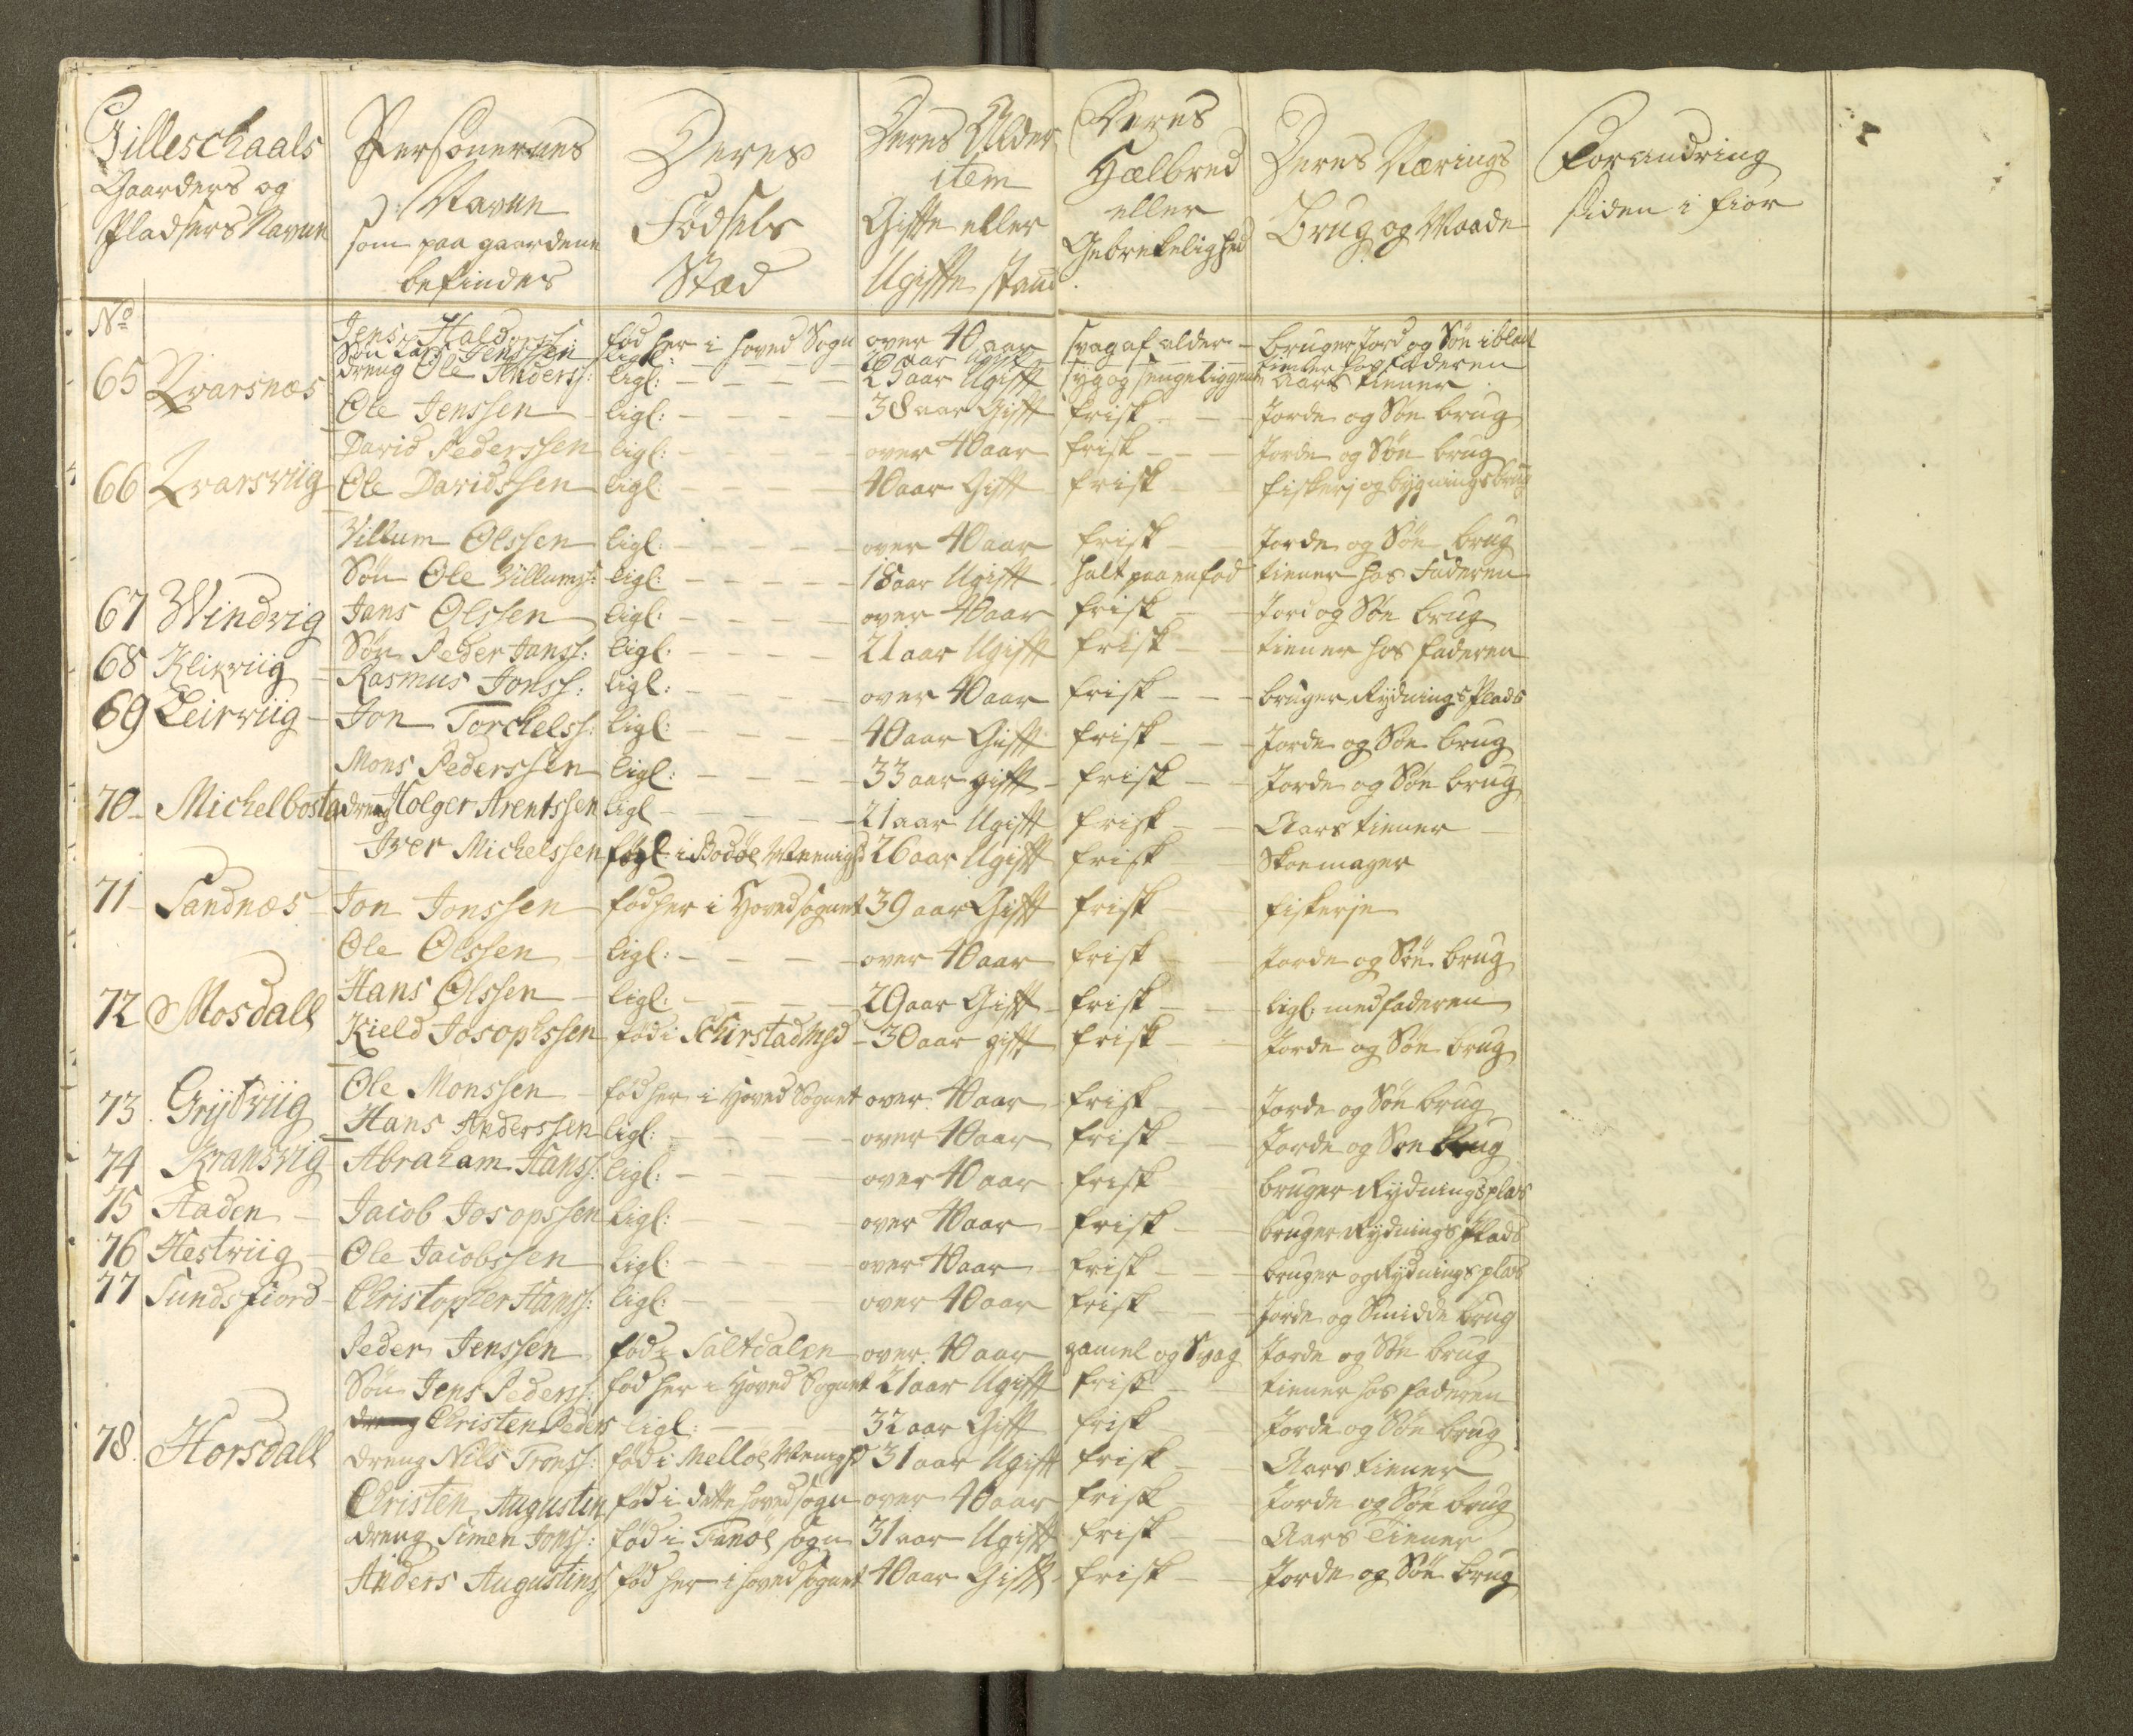 Gilleschaals Gaarders og Pladsers Navnn
Personernes Navnn som paa gaardene befindes
Deres Födsels Stæd
Deres Alder item Gifte eller Ugifte stand
Deres Hælbred eller Gebrekelighed
Deres Nærings Brug og Maade
Forandring siden i fior
No
Jens Haldorss: född her i hoved Sogn over 40 aar svag af alder - bruger Jord og Söe iblant
Sön Lars Jenssen ligl: aar Ugift tiener hos faderen
65 Qvarsnæs dreng Ole Anderss: ligl: - - - - 25 aar Ugifft syg og sengeliggende Aars tiener
Ole Jenssen ligl: - - - - 38 aar Gifft frisk - - Jorde og Söe brug
David Pederssen ligl: - - - - over 40 aar frisk - - Jorde og Söe brug
66 Qvarsviig Ole Davidssen ligl: - - - - 40 aar Gifft frisk - - fiskerj og bygningsbrug
Villum Olssen ligl: - - - - over 40 aar frisk - - Jorde og Söe brug
Sön Ole Villumss: ligl: - - - - 18 aar Ugifft halt paa en fod tiener hos Faderen
67 Windvig Jans Olssen ligl: - - - - over 40 aar frisk - - Jord og Söe brug
Sön Peder Janss: ligl: - - - - 21 aar Ugifft frisk - - tiener hos faderen
68 Kliкviig - Rasmus Jonss: ligl: - - - - over 40 aar frisk - - bruger Rydnings Plads
69 Leirviig - Jon Torchelss: ligl: - - - - 40 aar Gifft frisk - - Jorde og Söe brug
Mons Pederssen ligl: - - - - 33 aar gifft - frisk - - Jorde og Söe brug
70 - Michelbostad dreng Holger Arentssen ligl - - - - 21 aar Ugifft frisk - - Aars tiener -
Iver Michelssen föd i Bodöe Menigh 26 aar Ugifft frisk - Skoemager
71 - Sandnæs - Jon Jonssen föd her i Hovedsognet 39 aar Gifft frisk - - fiskerje
Ole Olssen - ligl: - - - - over 40 aar frisk - - Jorde og Söe brug
72 Mosdall Hans Olssen - ligl: - - - - 29 aar Gifft - frisk - - ligl: med faderen
Kield Josophssen föd i Schirstad Mgd - 30 aar gifft frisk - - Jorde og Söe brug
73. Grytviig Ole Monssen - föd her i Hoved Sognet over 40 aar frisk - - Jorde og Söe brug
Hans Anderssen ligl: - - - - over 40 aar frisk - - Jorde og Söe brug
74 Kransvig - Abraham Hanss: ligl: - - - - over 40 aar frisk bruger Rydningsplas
75 Aaden - Jacob Josopssen ligl: - - - - over 40 aar frisk - - bruger Rydnings Plads
76 Hestviig - Ole Jacobssen ligl: - - - - over 40 aar - frisk - - bruger og Rydningsplas
77 Sundsfiord - Christopher Hanss: ligl: - - - - over 40 aar frisk - - Jorde og Smidde brug
Peder Jenssen föd i Saltdalen over 40 aar gamel og Svag Jorde og Söe brug
Sön Jens Pederss: föd her i Hoved Sognet 21 aar Ugifft frisk - - tiener hos faderen
dreng Christen Peders ligl: - - - 32 aar Gifft frisk Jorde og Söe brug
78. Horsdall dreng Nils Tronss: föd i Mellöe Menigh 31 aar Ugifft frisk - Aars tiener
Christen Augustin föd i dette hovedsogn over 40 aar frisk Jorde og Söe brug
dreng Simen Jonss: föd i Tanöe sogn 31 aar Ugifft frisk Aars Tiener
Anders Augustins föd her i hovedsognet 40 aar Gifft - frisk - - Jorde og Söe brug